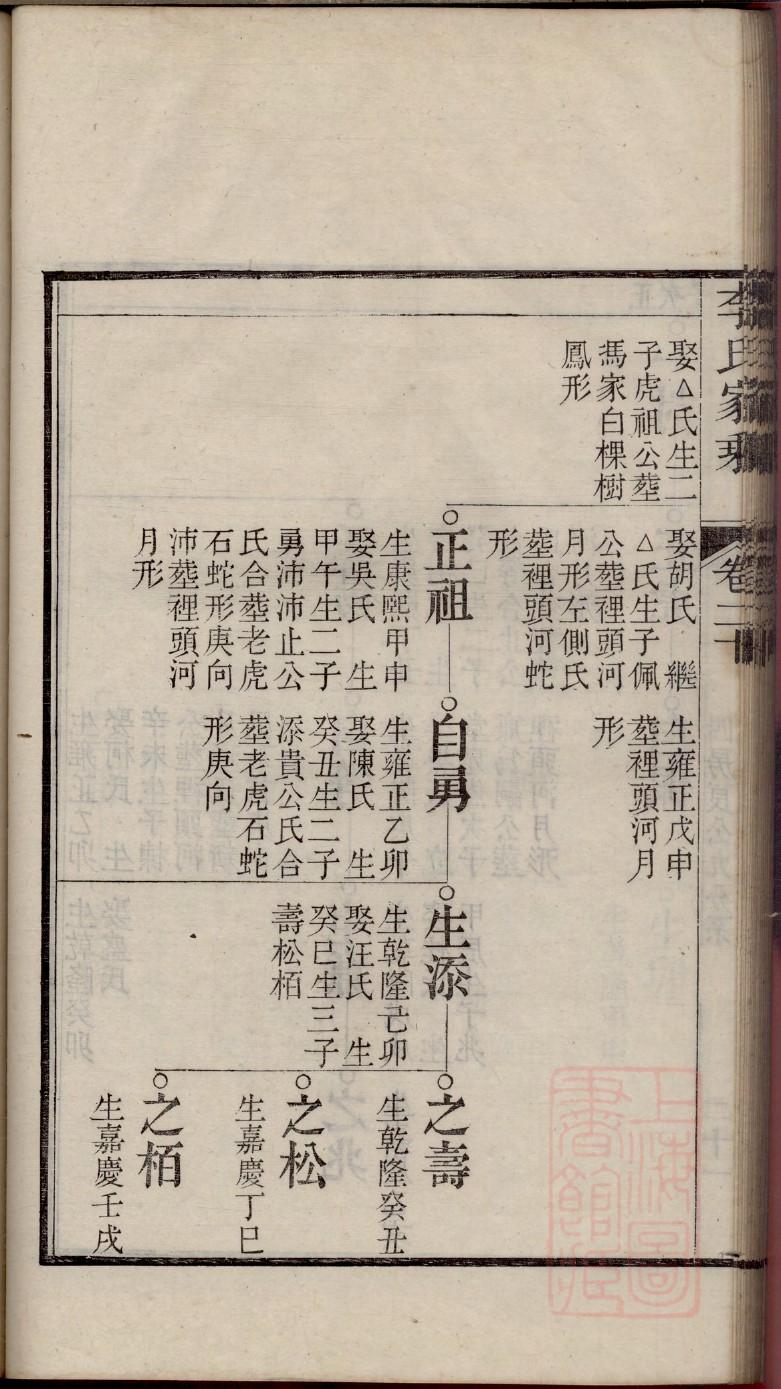 李氏家乘
卷二
娶△氏生二
子虎祖公塟
馮家白棵樹
鳳形
娶胡氏 繼
△氏生子佩
公塟裡頭河
月形左側氏
塟裡頭河蛇
形
生雍正戊申
塟裡頭河月
形
正祖
生康熙甲申
娶吳氏 生
甲午生二子
勇沛沛止公
氏合塟老虎
石蛇形庚向
沛塟裡頭河
月形
自勇
生雍正乙卯
娶陳氏 生
癸丑生二子
添貴公氏合
塟老虎石蛇
形庚向
生添
生乾隆己卯
娶汪氏 生
癸巳生三子
壽松栢
之壽
生乾隆癸丑
之松
生嘉慶丁巳
之栢
生嘉慶壬戌
上海圖
書館藏